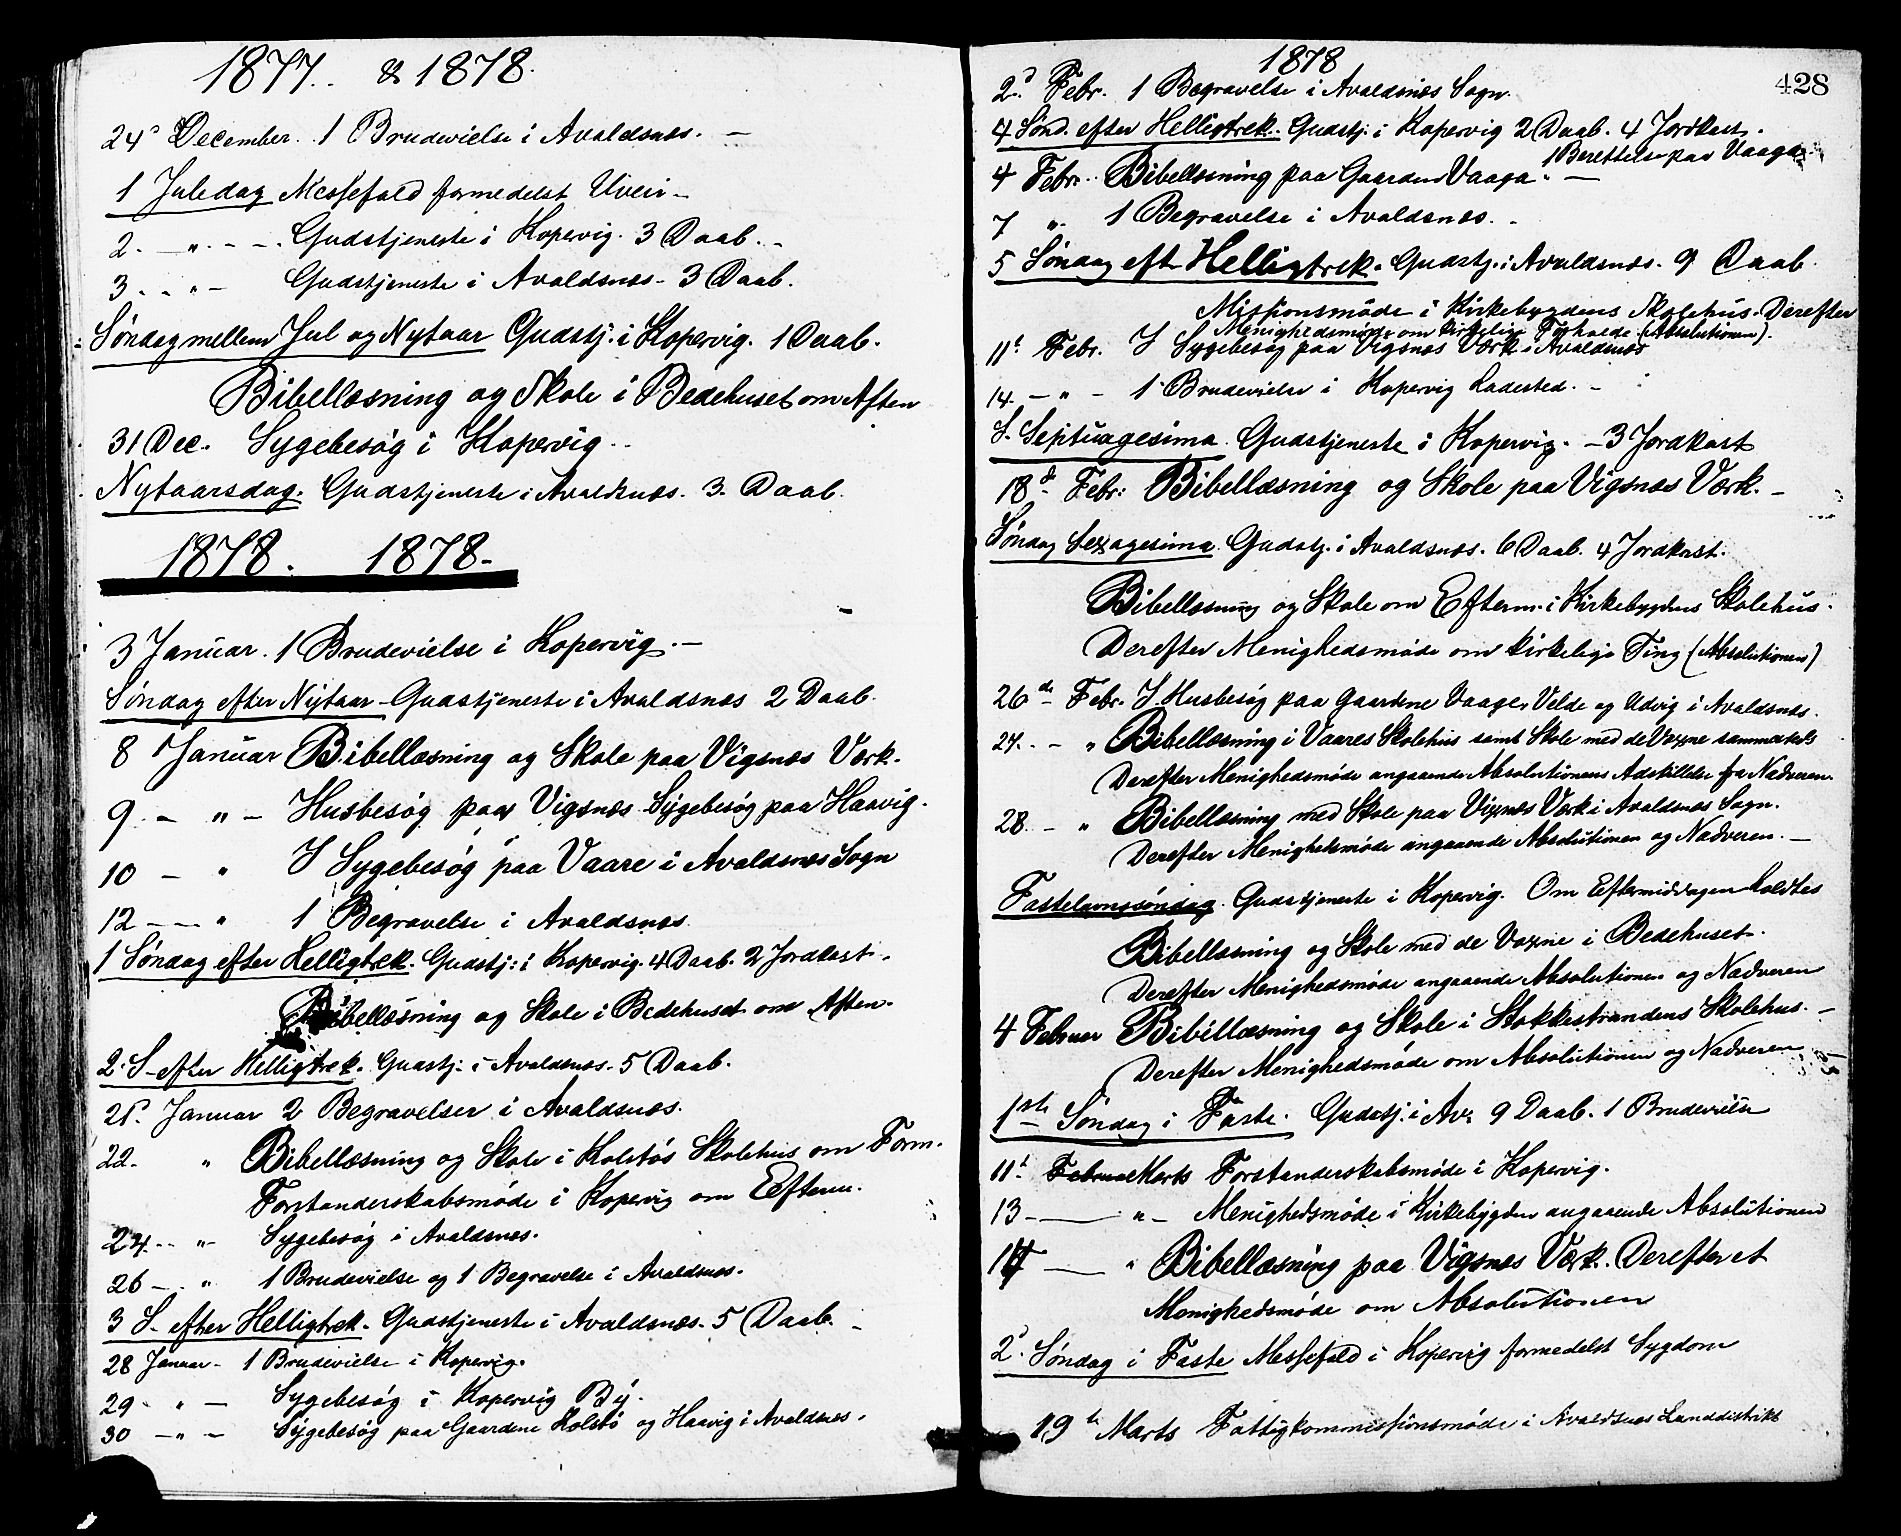 1877. & 1878.
24de December. 1 Brudevielse i Avaldsnæs. —
1 Juledag Messefald formedelst Uveir —
2. — „ - - -. Gudstjeneste i Kopervig. 3 Daab. -
3. - . „ - Gudstjeneste i Avaldsnæs - 3 Daab.
Søndag mellem Jul og Nytaar Gudstj. i Kopervig. 1 Daab.
Bibellæsning og Skole i Bedehuset om Aften
31 Dec. Sygebesøg i Kopervig. -
Nytaarsdag. Gudstjeneste i Avaldsnæs. 3. Daab.
1878. 1878.
3 Januar. 1 Brudevielse i Kopervig. —
Søndag efter Nytaar - Gudstjeneste i Avaldsnæs 2 Daab.
8 Januar Bibellæsning og Skole paa Vigsnæs Værk.
9. — „ — Husbesøg paa Vigsnæs. Sygebesøg paa Haavig.
10 — „ Sygebesøg paa Vaare i Avaldsnæs Sogn
12 — — „ 1 Begravelse i Avaldsnæs.
1 Søndag efter Helligtrek. Gudstj: i Kopervig. 4 Daab. 2 Jordkast.
Bibellæsning og Skole i Bedehuset om Aften.
2. S. efter Helligtrek. Gudstj. i Avaldsnæs. 5 Daab.
21. Januar 2 Begravelser i Avaldsnæs.
22. „ Bibellæsning og Skole i Kolstøs Skolehus om Form.
Forstanderskabsmøde i Kopervig om Efterm.
24. - - „ - Sygebesøg i Avaldsnæs.
26 — . „ 1 Brudevielse og 1 Begravelse i Avaldsnæs.
3 S. efter Helligtrek. Gudstjeneste i Avaldsnæs. 5 Daab. -
28 Januar - 1 Brudevielse i Kopervig.
29 - „ — Sygebesøg i Kopervig By.
30 — „ — Sygebesøg paa Gaardene Kolstø og Haavig i Avaldsnæs.
1878
428
2. Febr. 1 Begravelse i Avaldsnæs Sogn.
4 Sønd. efter Helligtrek. Gudstj. i Kopervig 2 Daab. 4 Jordkast.
1 Berettelse paa Vaaga.
4 Febr. Bibellæsning paa Gaarden Vaaga. —
7 „. 1 Begravelse i Avaldsnæs. -
5 Søndag eft Helligtrek. Gudstj. i Avaldsnæs. 9 Daab.
Missionsmøde i Kirkebygdens Skolehus. Derefter
Menighedsmøde om kirkelige Forholde (Absolutionen).
11t Febr. Sygebesøg paa Vigsnæs Værk i Avaldsnæs
14. — „ - 1 Brudevielse i Kopervig Ladested. -
S. Septuagesima. Gudstjeneste i Kopervig. - 3 Jordkast
18d Febr: Bibellæsning og Skole paa Vigsnæs Værk. —
Søndag Sexagesima. Gudstj. i Avaldsnæs. 6 Daab. 4 Jordkast.
Bibellæsning og Skole om Efterm. i Kirkebygdens Skolehus.
Derefter Menighedsmøde om kirkelige Ting (Absolutionen)
26de Febr. Husbesøg paa Gaardene Vaage, Velde og Udvig i Avaldsnæs.
27. - - „ Bibellæsning i Vaares Skolehus samt Skole med de Voxne sammesteds
Derefter Menighedsmøde angaaende Absolutionens Adskillelse fra Nadveren.
28. - „ Bibellæsning med Skole paa Vigsnæs Værk i Avaldsnæs Sogn.
Derefter Menighedsmøde angaaende Absolutionen og Nadveren. —
Fastelavnssøndag. Gudstjeneste i Kopervig. Om Eftermiddagen holdtes
Bibellæsning og Skole med de Voxne i Bedehuset.
Derefter Menighedsmøde angaaende Absolutionen og Nadveren
4 Februar Bibellæsning og Skole i Stokkestrandens Skolehus. —
Derefter Menighedsmøde om Absolutionen og Nadveren
1ste Søndag i Faste. Gudstj. i Av. 9 Daab. 1 Brudevielse
11t Februar Marts Forstanderskabsmøde i Kopervig.
13 - —— „ - Menighedsmøde i Kirkebygden angaaende Absolutionen
14 —— „ Bibellæsning paa Vigsnæs Værk. Derefter et
Menighedsmøde om Absolutionen
2. Søndag i Faste Messefald i Kopervig formedelst Sygdom
19de Marts Fattigkommissionsmøde i Avaldsnæs Landdistrikt